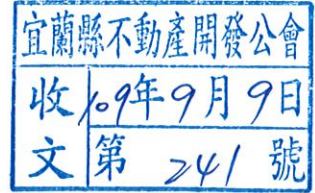 宜蘭縣不動產開發公會
收文
109年9月9日
第 241 號